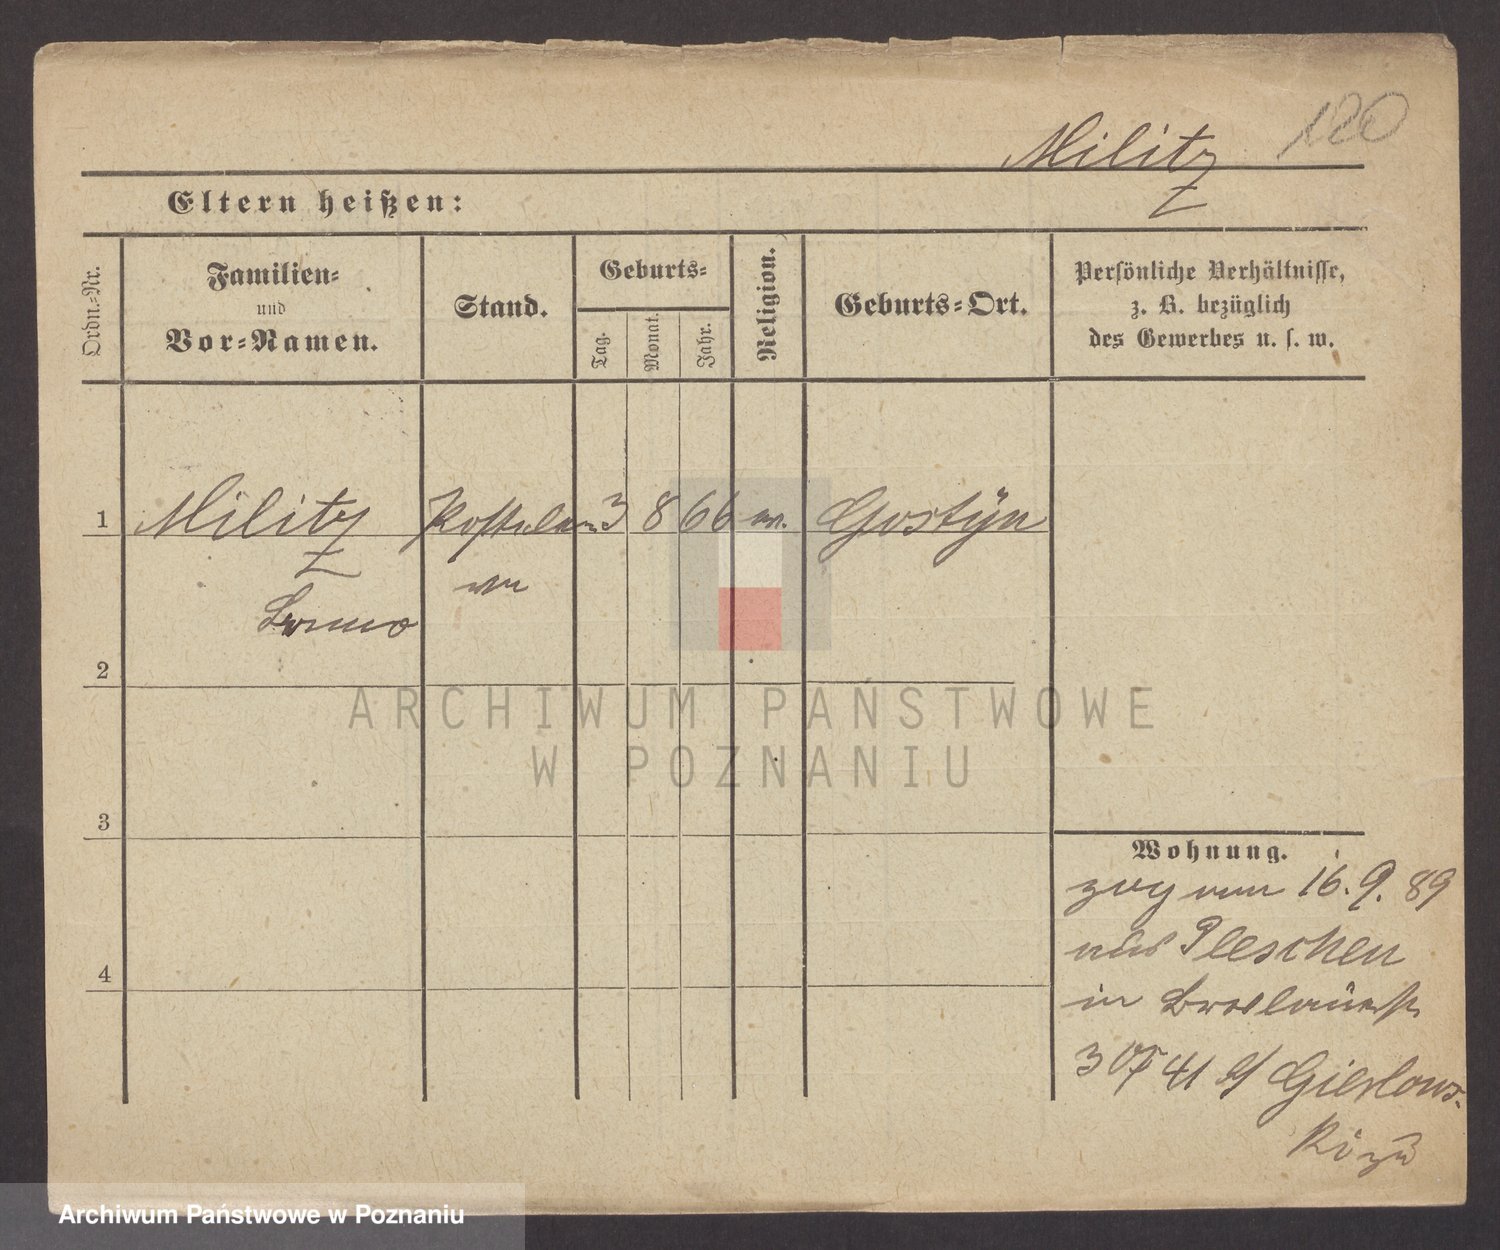 120
Militz
Eltern heißen:
Ordn.-Nr.
Familien-
und
Vor-Namen.
Stand.
Geburts-
Tag.
Monat.
Jahr.
Religion.
Geburts-Ort.
Persönliche Verhältnisse,
z. B. bezüglich
des Gewerbes u. s. w.
1
Militz
3
8
66
Gostÿn
Bruno
2
ARCHIWUM PAŃSTWOWE
W POZNANIU
3
4
Wohnung.
zog am 16. 9. 89
aus Pleschen
in
Archiwum Państwowe w Poznaniu